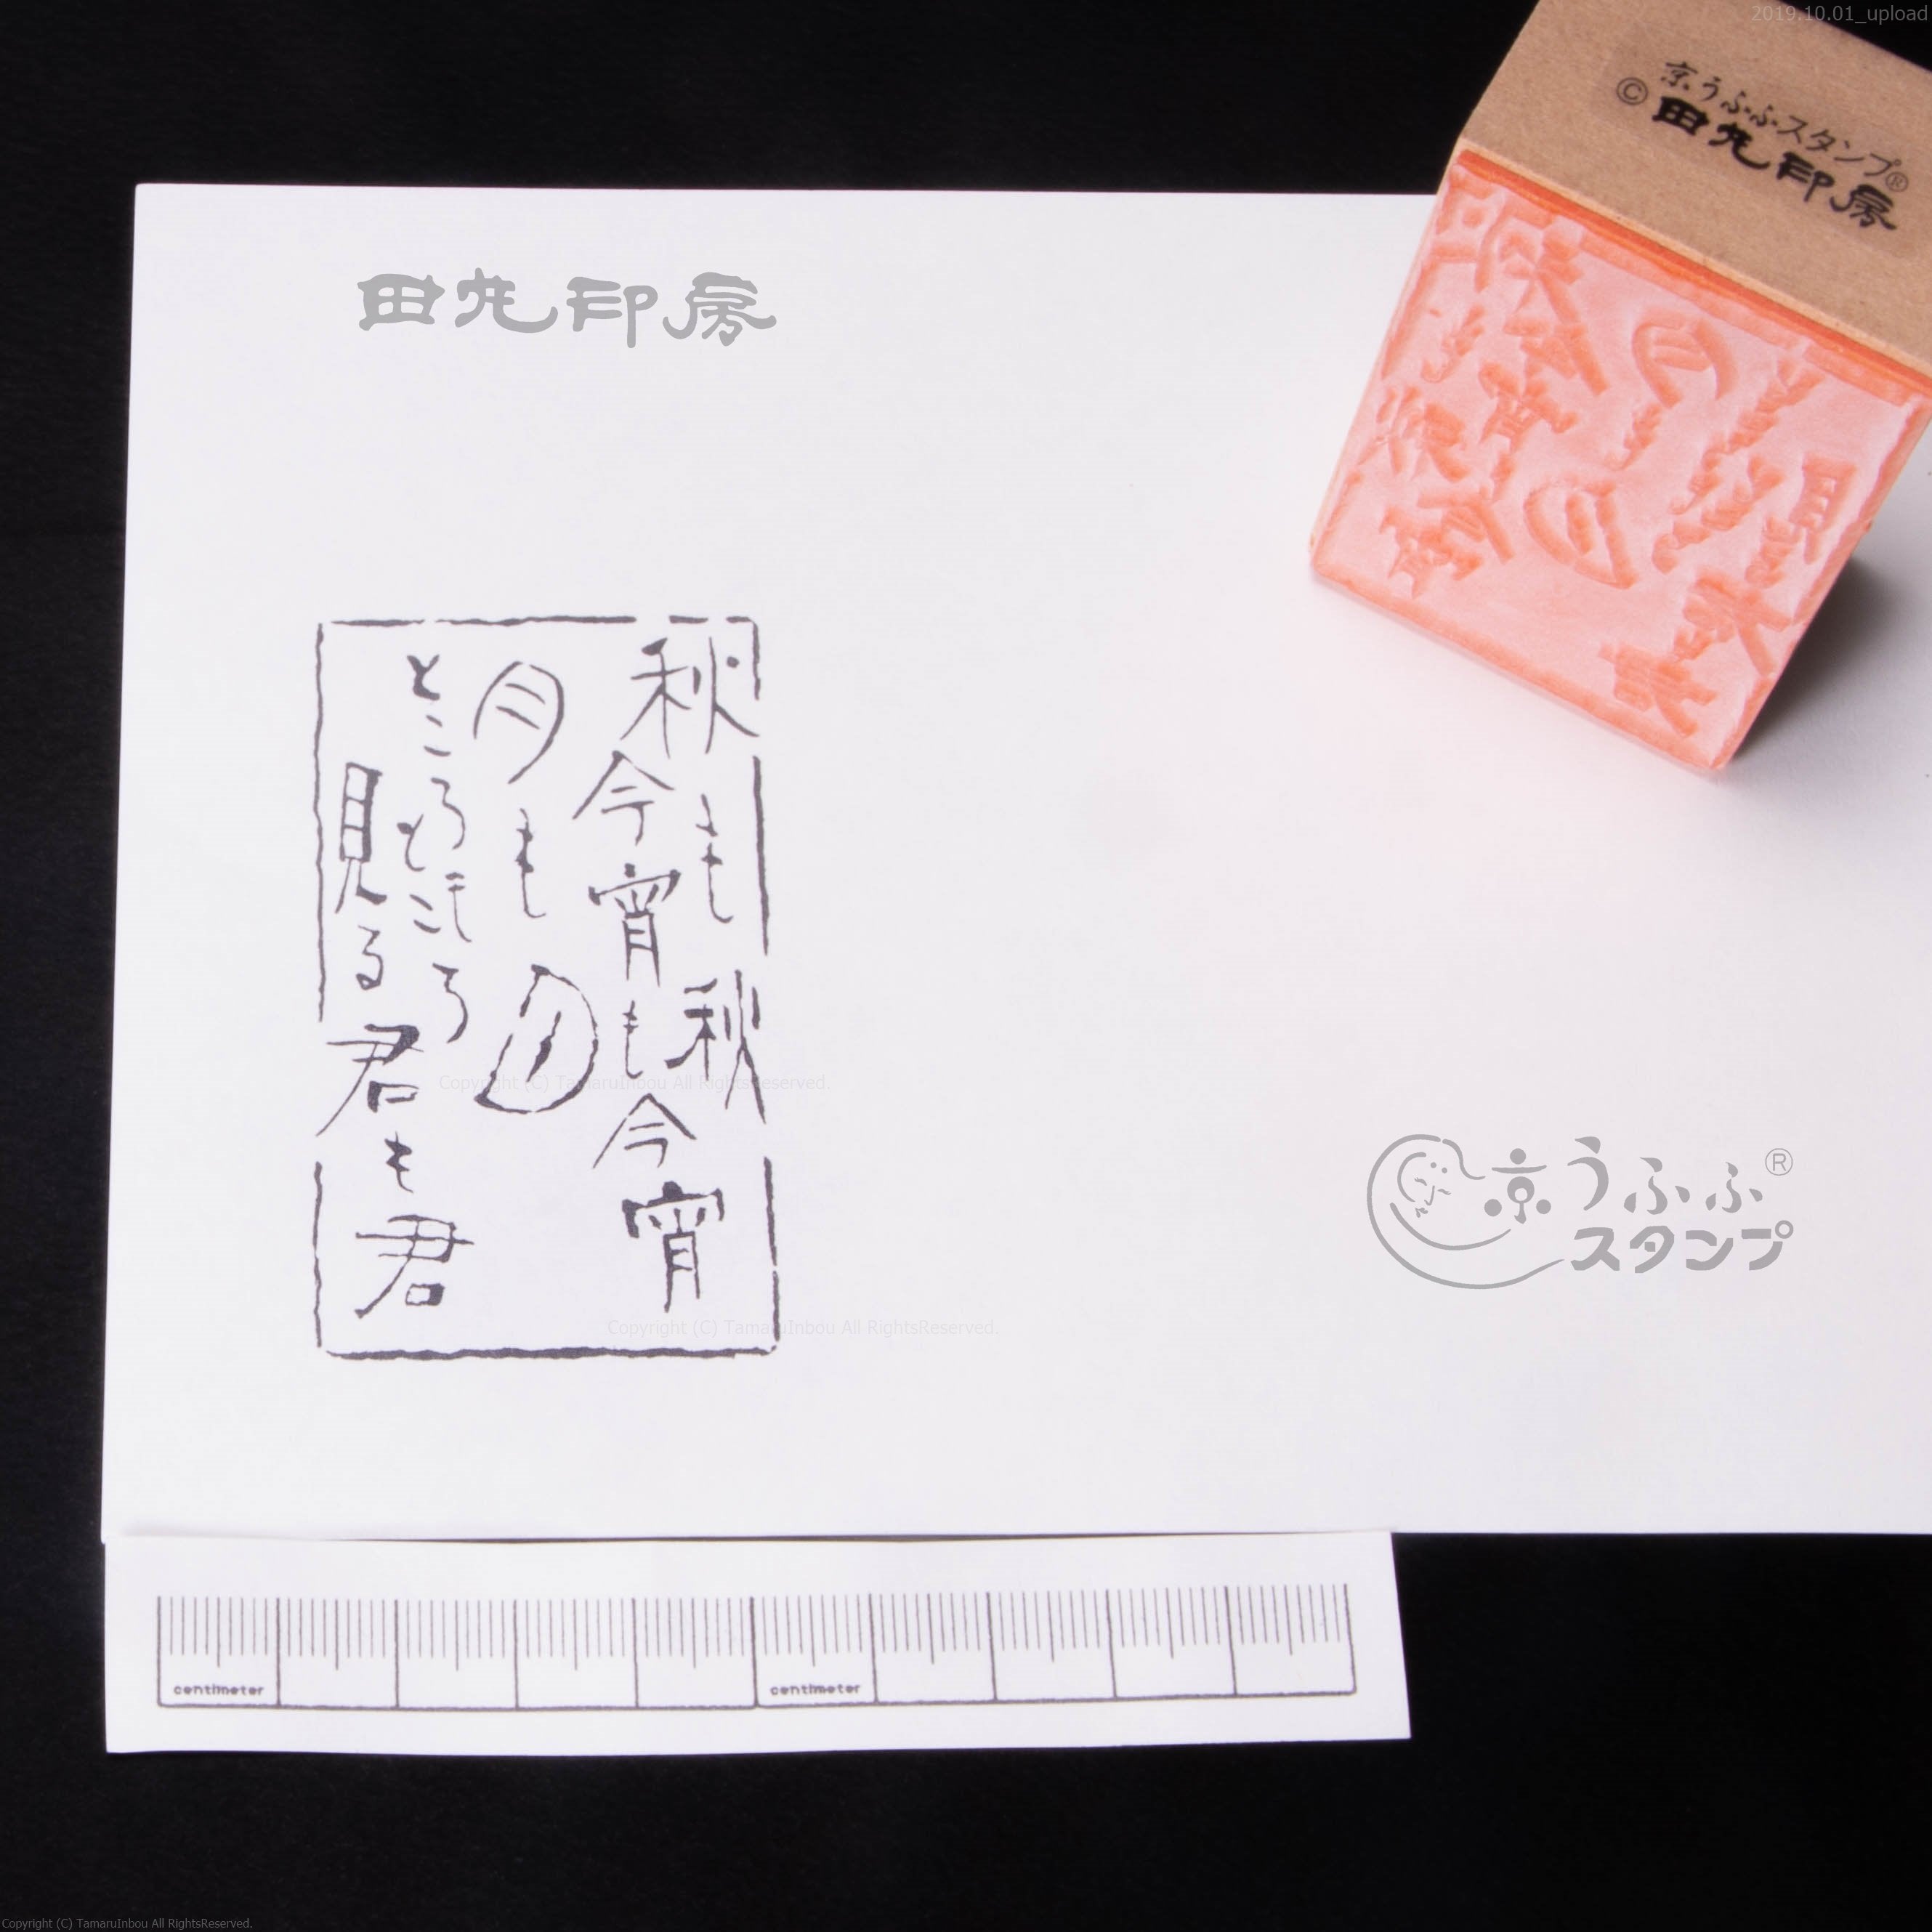 2019.10.01_upload
京うふふスタンプ®
© 田丸印房
田丸印房
秋も秋
今宵も今宵
月も月
ところもところ
見る君も君
Copyright (C) TamaruInbou All RightsReserved.
京うふふ®
スタンプ
Copyright (C) TamaruInbou All RightsReserved.
centimeter centimeter
Copyright (C) TamaruInbou All RightsReserved.